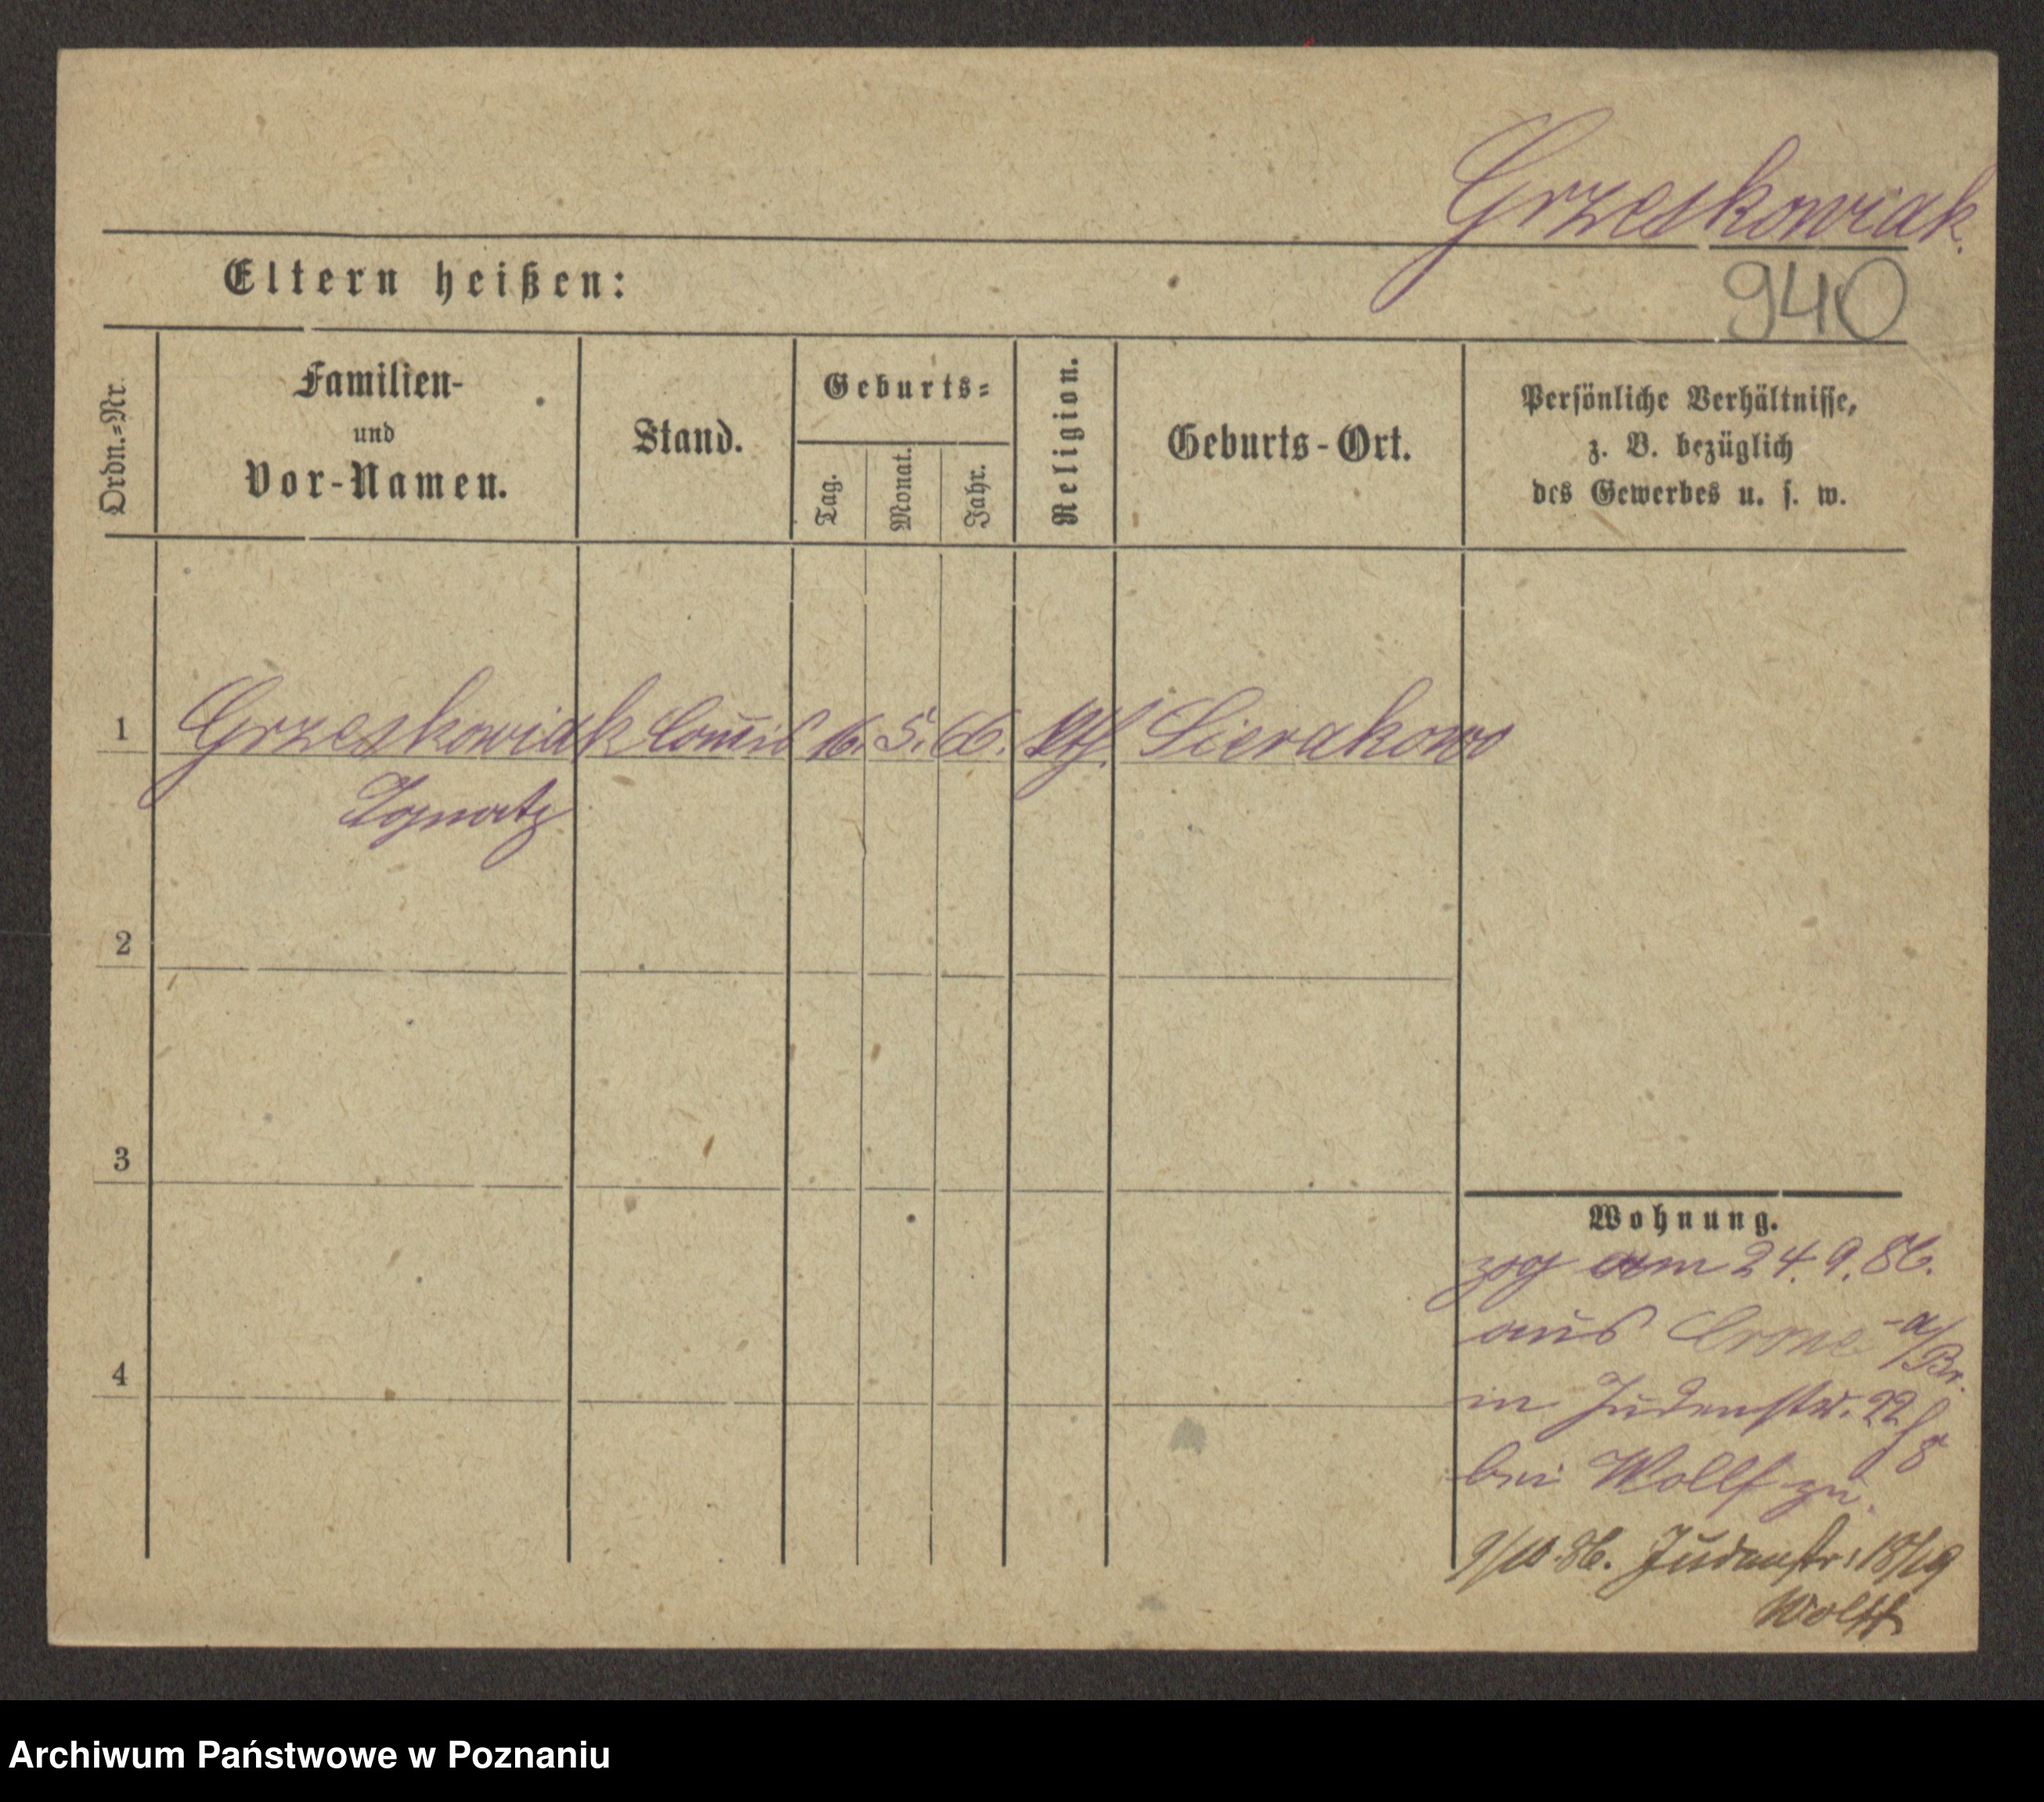 Grzeskowiak.
940
Eltern heißen:
Ordn.=Nr.
Familien-
und
Vor-Namen.
Stand.
Geburts=
Tag.
Monat.
Jahr.
Religion.
Geburts-Ort.
Persönliche Verhältnisse,
z. B. bezüglich
des Gewerbes u. s. w.
1 Grzeskowiak Com̅is 16. 5. 66. Kth. Sierakowo
Ignatz
2
3
4
Wohnung.
zog am 24. 9. 86.
aus Crone a/Br.
in Judenstr. 22
bei Wollf zu.
9/10 86. Judenstr: 18/19
Wolff
Archiwum Państwowe w Poznaniu